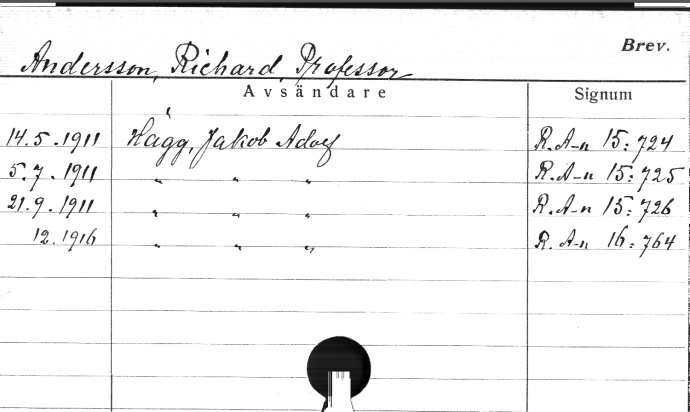 Brev.
Andersson, Richard, Professor
Avsändare Signum
14.5.1911 Hägg, Jakob Adolf R. A-n 15:724
5.7.1911 " " " R. A-n 15:725
21.9.1911 " " " R. A-n 15:726
12.1916 " " " R. A-n 16:764